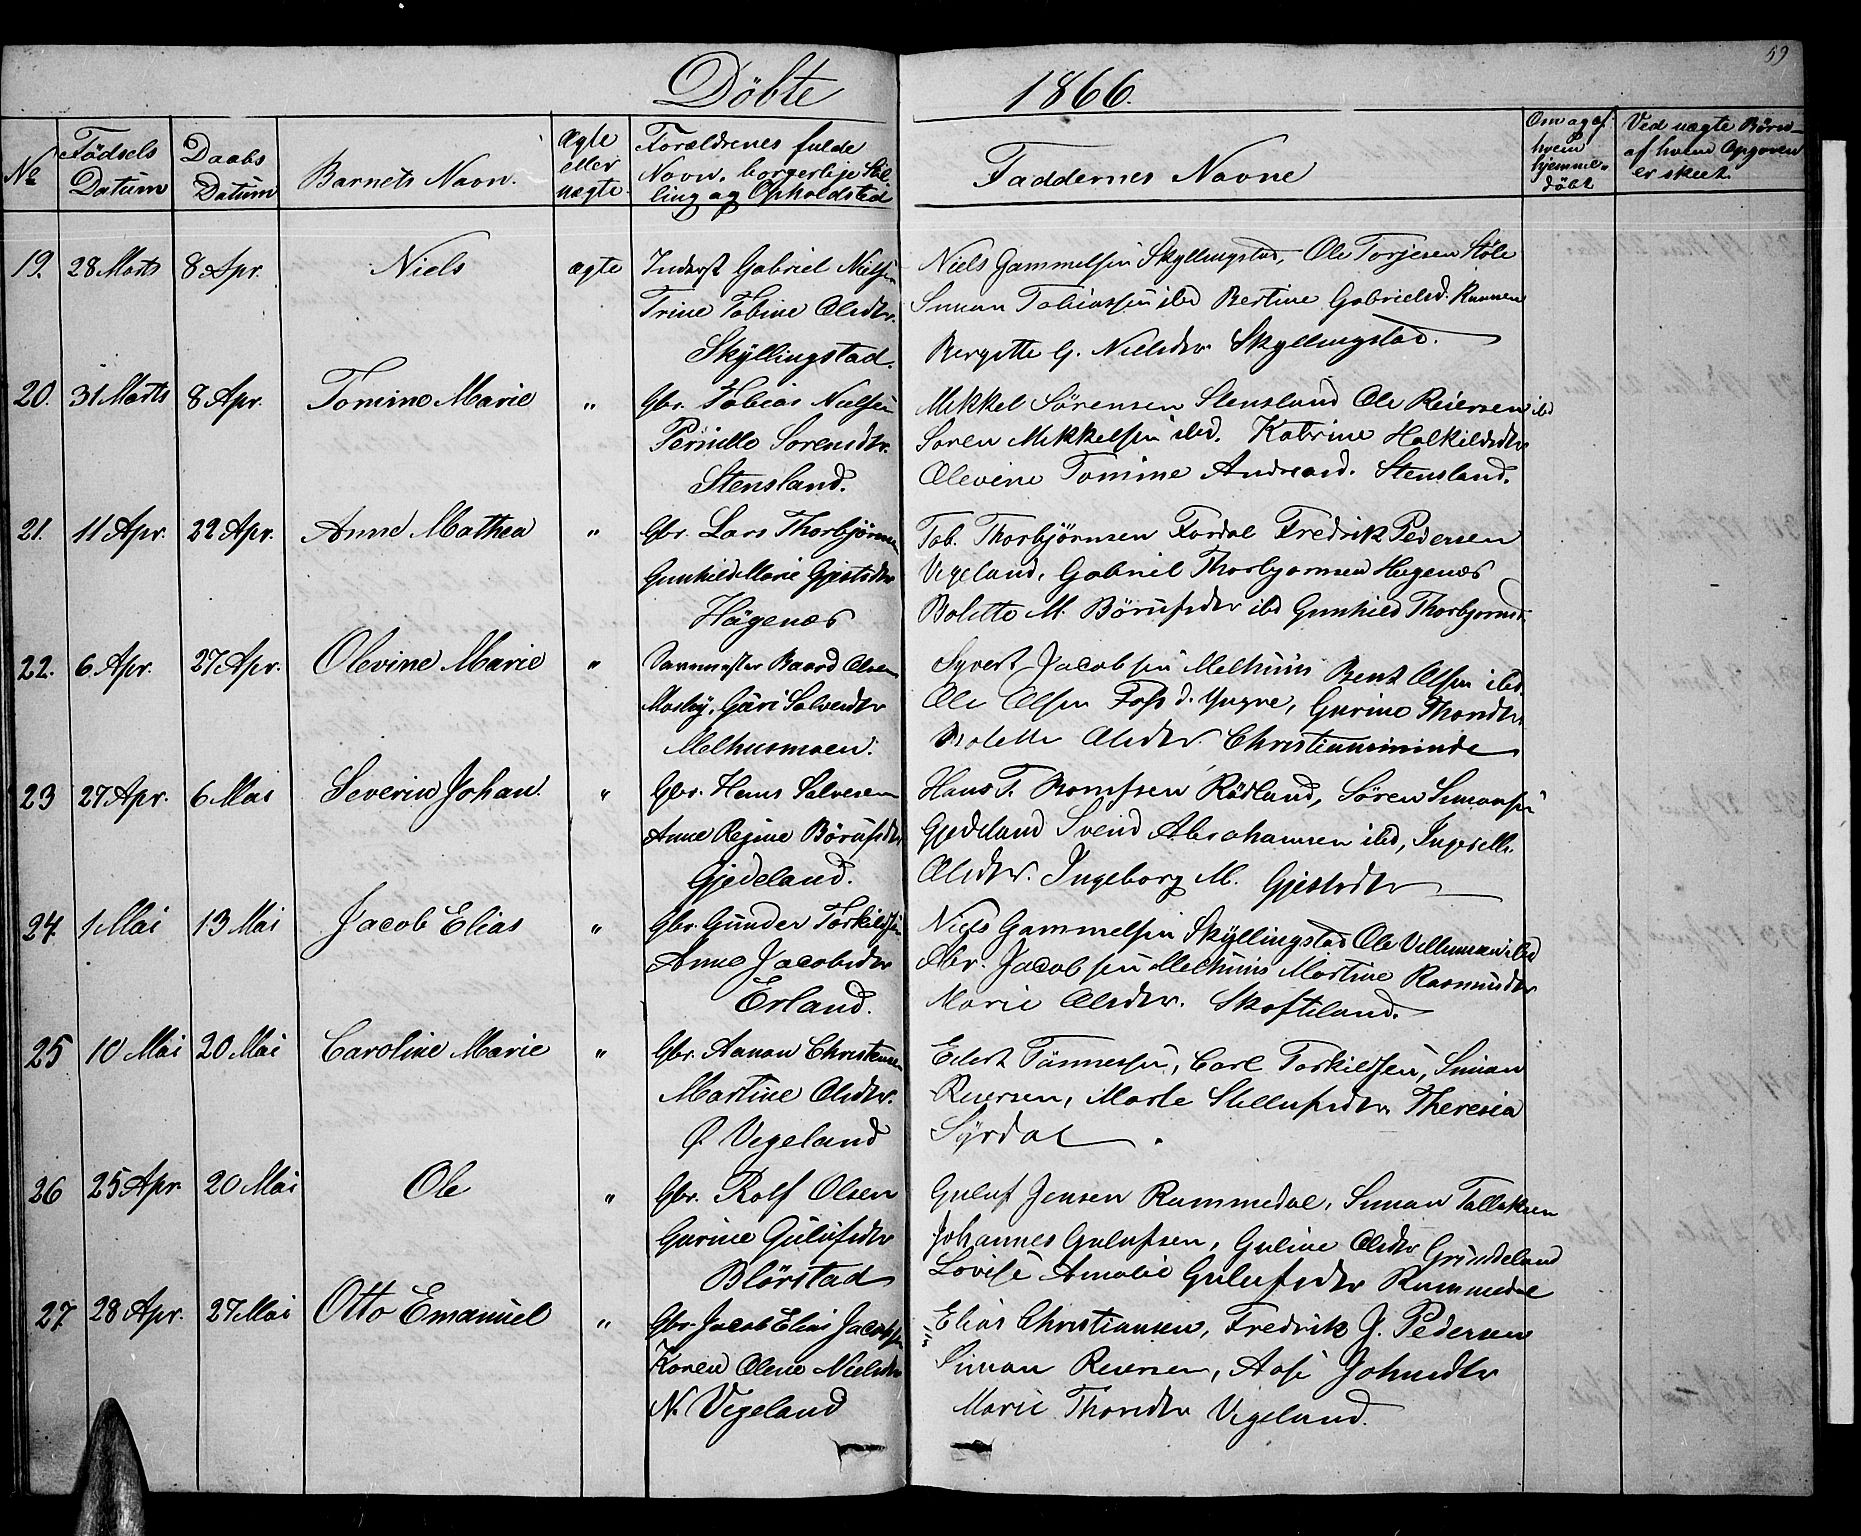 59
Döbte 1866.
No Födsels Datum Daabs Datum Barnets Navn. Ægte eller uægte. Forældrenes fulde Navn, borgerlige Stilling og Opholdsted Faddernes Navne Om og af hvem hjemmedöbt Ved uægte Börn af hvem Opgaven er skeet.
19. 28 Marts 8 Apr. Niels ægte Inderst Gabriel Nielsen
Trine Tobine Olsdtr.
Skyllingstad.
Niels Gammelsen Skyllingstad, Ole Torjesen Stöle
Simon Tobiassen ibd Bertine Gabrielsd.
Bergitte G. Nielsdtr Skyllingstad.
20. 31 Marts 8 Apr. Tomine Marie " Gbr. Tobias Nielsen
Pernille Sorensdtr.
Stensland.
Mikkel Sörensen Stensland Ole Reiersen ibd
Soren Mikkelsen ibd. Katrine Halkildsdtr
Olevine Tomine Andreasd. Stensland.
21. 11 Apr. 22 Apr. Anne Mathea " Gbr. Lars Thorbjörnsen
Gunhild Marie Gjestsdtr
Hägenæs
Tob. Thorbjörnsen Fardal Fredrik Pedersen
Vegeland, Gabriel Thorbjornsen Hegenæs
Bolette M. Börufsdtr ibd Gunhild Thorbjornsd.
22. 6 Apr. 27 Apr. Olevine Marie " Baard Olsen
Mosby, Guri Salvesdtr
Melhusmoen.
Syvert Jacobsen Melhuus Bent Olsen ibd.
Ole Olsen Foss d. Yngre, Gurine Thordtr
Bolette Olsdtr. Christiansminde
23 27 Apr. 6 Mai Severin Johan. " Gbr. Hans Salvesen
Anne Regine Börufsdtr
Gjedeland.
Hans T. Rödland, Sören Simonsen
Gjedeland Svend Abrahamsen ibd, Ingeselle
Olsdtr. Ingeborg M. Gjestsdtr
24. 1 Mai 13 Mai Jacob Elias " Gbr. Gunder Torkildsen
Anne Jacobsdtr
Erland.
Niels Gammelsen Skyllingstad Ole Villumsen ibd
Abr. Jacobsen Melhuus Martine Rasmusdtr
Marie Olsdtr. Skofteland.
25 10 Mai 20 Mai Caroline Marie " Gbr. Aanon Christensen
Martine Olsdtr.
Ø. Vegeland
Edert Tönnessen, Carl Torkildsen, Simon
Reiersen, Marte Stellufsdtr Theresia
Syrdal.
26 25 Apr 20 Mai Ole " Gbr. Rolf Olsen
Gurine Gulufsdtr
Blörstad
Guluf Jensen Rammedal, Simon Tallaksen
Johannes Gulufsen, Guline Olsdtr Grindeland
Lovise Amalie Gulufsdtr Rammedal
27. 28 Apr. 27 Mai Otto Emanuel " Gbr. Jacob Elias Jacobsen
Karen Olene Nielsdtr
N. Vegeland
Elias Christiansen, Fredrik J. Pedersen
Simon Reiersen, Aase Johnsdtr
Marie Thorsdtr Vegeland.